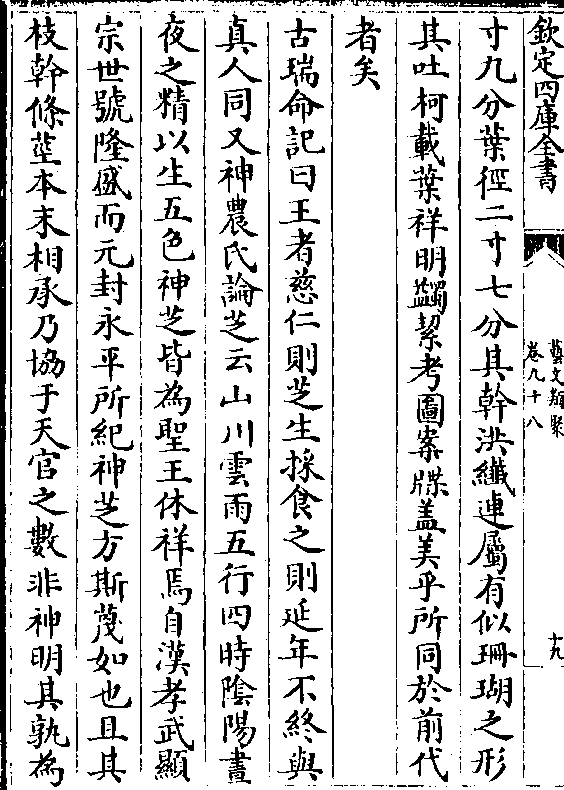 欽定四庫全書
藝文類聚
卷九十八
十九
寸九分葉徑二寸七分其幹洪纖連屬有似珊瑚之形
其吐柯載葉祥明蠲絜考圖案牒盖美乎所同於前代
者矣
古瑞命記曰王者慈仁則芝生採食之則延年不終與
真人同又神農氏論芝云山川雲雨五行四時陰陽晝
夜之精以生五色神芝皆為聖王休祥焉自漢孝武顯
宗世號隆盛而元封永平所紀神芝方斯蔑如也且其
枝幹條莖本末相承乃協于天官之數非神明其孰為